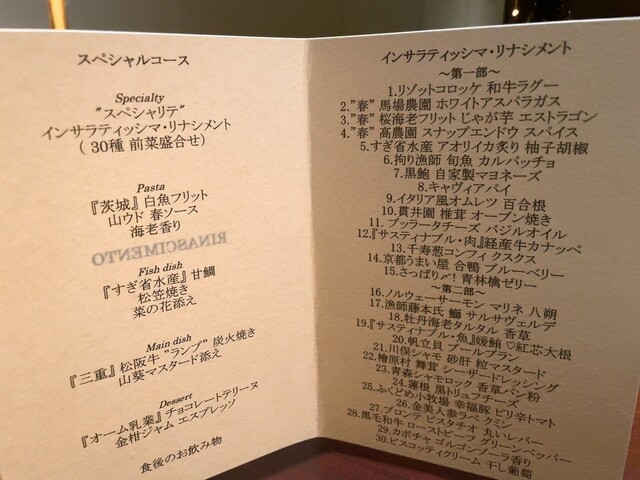 スペシャルコース
Specialty
"スペシャリテ"
インサラティッシマ・リナシメント
( 30種 前菜盛合せ)
Pasta
『茨城』白魚フリット
山ウド 春ソース
海老香り
RINASCIMENTO
Fish dish
『すぎ省水産』甘鯛
松笠焼き
菜の花添え
Main dish
『三重』松阪牛"ランプ"炭火焼き
山葵マスタード添え
Dessert
『オーム乳業』チョコレートテリーヌ
金柑ジャム エスプレッソ
食後のお飲み物
インサラティッシマ・リナシメント
～第一部～
1.リゾットコロッケ 和牛ラグー
2."春" 馬場農園 ホワイトアスパラガス
3."春" 桜海老フリット じゃが芋 エストラゴン
4."春" 高農園 スナップエンドウ スパイス
5.すぎ省水産 アオリイカ炙り 柚子胡椒
6.拘り漁師 旬魚 カルパッチョ
7.黒鮑 自家製マヨネーズ
8.キャヴィアパイ
9.イタリア風オムレツ 百合根
10.貫井園 椎茸 オーブン焼き
11.ブッラータチーズ バジルオイル
12.『サスティナブル・肉』経産牛カナッペ
13.千寿葱コンフィ クスクス
14.京都うまい屋 合鴨 ブルーベリー
15.さっぱり〆! 青林檎ゼリー
～第二部～
16.ノルウェーサーモン マリネ 八朔
17.漁師藤本氏 鰤 サルサヴェルデ
18.牡丹海老タルタル 香草
19.『サスティナブル・魚』媛鮪 ♡紅芯大根
20.帆立貝 ブールブラン
21.川俣シャモ 砂肝 粒マスタード
22.檜原村 舞茸 シーザードレッシング
23.青森シャモロック 香草パン粉
24.蓮根 黒トリュフチーズ
25.ふくどめ小牧場 幸福豚 ピリ辛トマト
26.金美人参ラペ クミン
27.ブロンテ ピスタチオ 丸いレバー
28.黒毛和牛 ローストビーフ グリーンペッパー
29.カボチャ ゴルゴンゾーラ香り
30.ビスコッティクリーム 干し葡萄